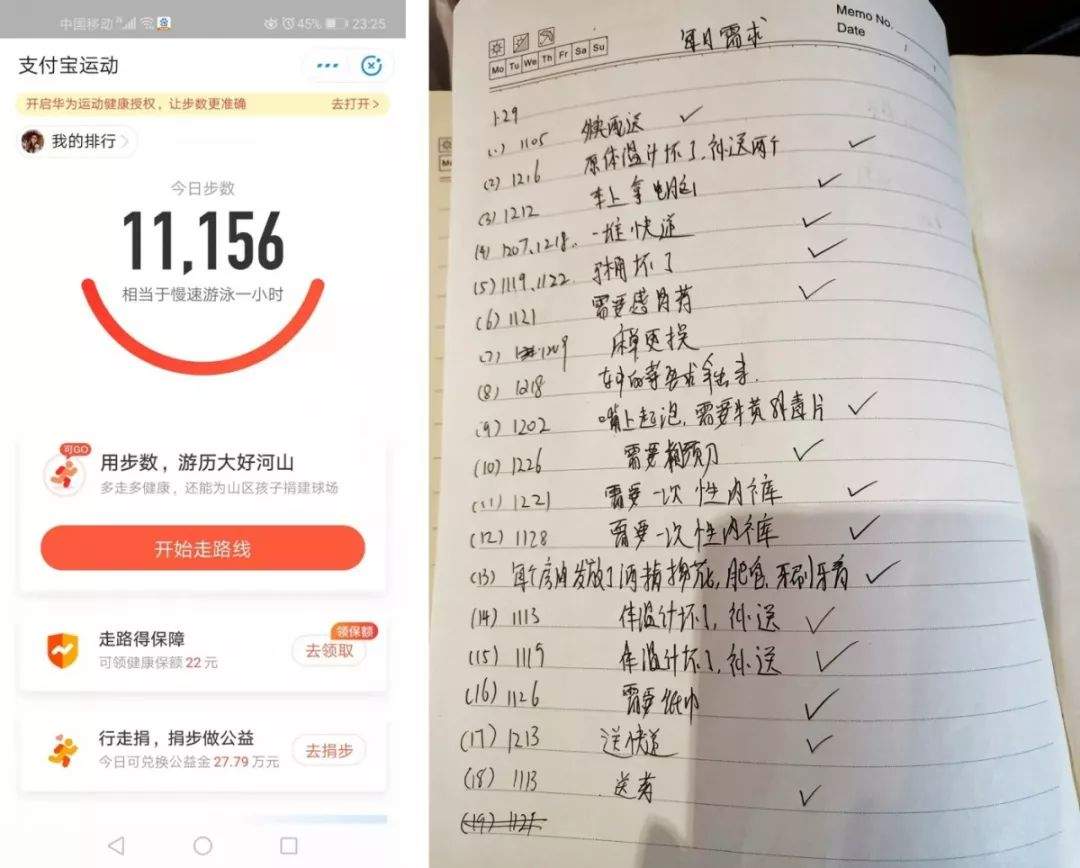 中国移动
45%
23:25
支付宝运动
开启华为运动健康授权，让步数更准确
去打开>
我的排行
今日步数
11,156
相当于慢速游泳一小时
可GO
用步数，游历大好河山
多走多健康，还能为山区孩子捐建球场
开始走路线
走路得保障
领保额
可领健康保额22元
去领取
行走捐，捐步做公益
今日可兑换公益金27.79万元
去捐步
Memo No.
Date
Mo Tu We Th Fr Sa Su
每日需求
1.29
(1) 1105 快配送
(2) 1216 原体温计坏了,补送两个
(3) 1212 车上拿电脑
(4) 1207、1218. 一堆快递
(5) 1119、1122. 马桶坏了
(6) 1121 需要感冒药
(7) 1209 床单更换
(8) 1218
(9) 1202 嘴上起泡,需要牛黄解毒片
(10) 1226 需要剃须刀
(11) 1221 需要一次性内裤
(12) 1128 需要一次性内裤
(13) 每个房间发放了酒精棉花,肥皂,牙刷牙膏
(14) 1113 体温计坏了,补送
(15) 1119 体温计坏了,补送
(16) 1126 需要纸巾
(17) 1213 送快递
(18) 1113 送药
(19) 1121